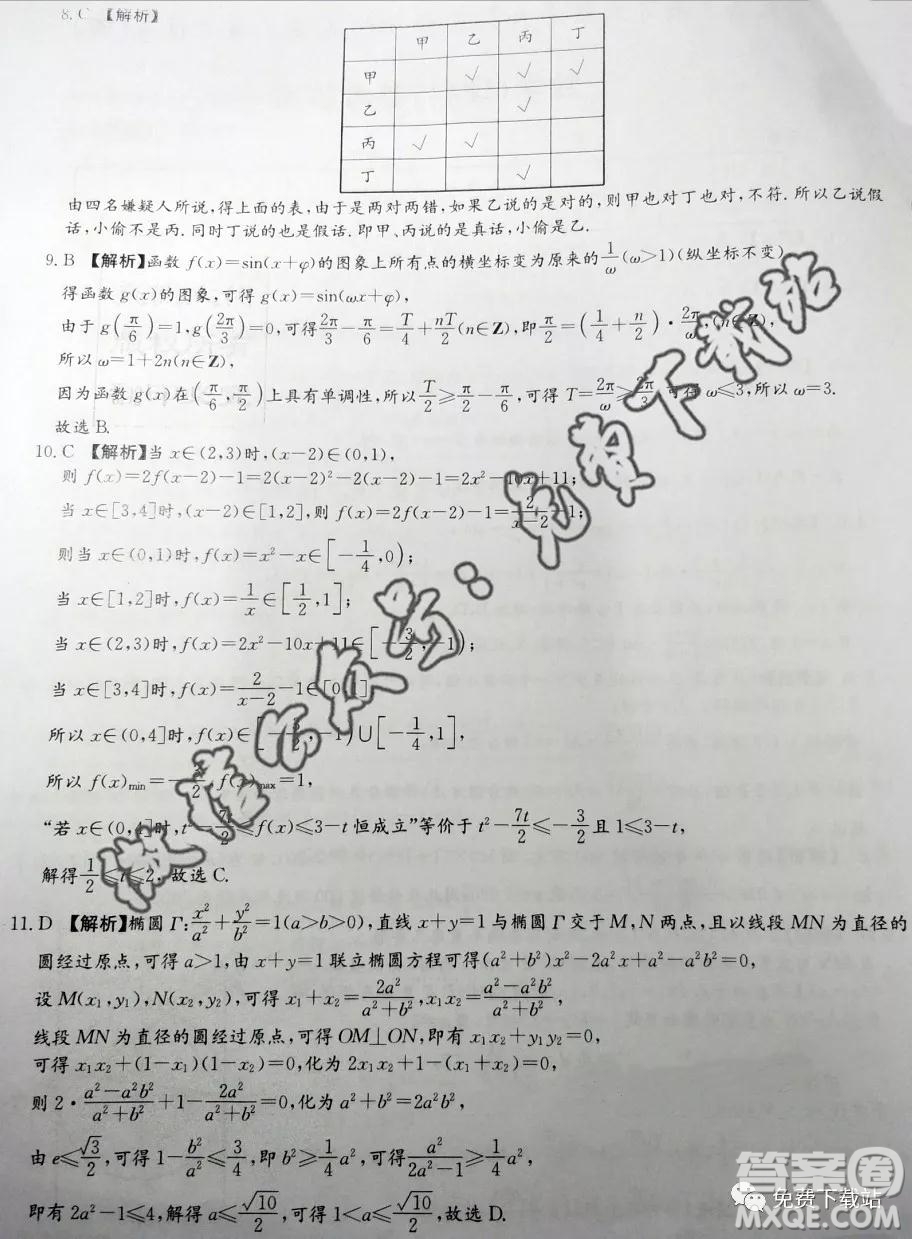 8. C 【解析】
甲 乙 丙 丁
甲 √ √ √
乙 √
丙 √ √
丁 √
由四名嫌疑人所说,得上面的表,由于是两对两错,如果乙说的是对的,则甲也对丁也对,不符.所以乙说假
话,小偷不是丙.同时丁说的也是假话.即甲、丙说的是真话,小偷是乙.
9. B 【解析】函数 f(x)=sin(x+φ)的图象上所有点的横坐标变为原来的1/ω(ω>1)(纵坐标不变)
得函数 g(x)的图象,可得 g(x)=sin(ωx+φ),
由于 g(π/6)=1,g(2π/3)=0,可得2π/3−π/6=T/4+nT/2(n∈Z),即π/2=(1/4+n/2)·2π/ω,(n∈Z),
所以 ω=1+2n(n∈Z),
因为函数 g(x)在(π/6,π/2)上具有单调性,所以T/2≥π/2−π/6,可得 T=2π/ω≥2π/3,可得 ω≤3,所以 ω=3.
故选 B.
10. C 【解析】当 x∈(2,3)时,(x−2)∈(0,1),
则 f(x)=2f(x−2)−1=2(x−2)²−2(x−2)−1=2x²−10x+11;
当 x∈[3,4]时,(x−2)∈[1,2],则 f(x)=2f(x−2)−1=2/(x−2)−1;
则当 x∈(0,1)时,f(x)=x²−x∈[−1/4,0);
当 x∈[1,2]时,f(x)=1/x∈[1/2,1];
当 x∈(2,3)时,f(x)=2x²−10x+11∈[−3/2,−1);
当 x∈[3,4]时,f(x)=2/(x−2)−1∈[0,1]
所以 x∈(0,4]时,f(x)∈[−3/2,−1)∪[−1/4,1],
所以 f(x)min=−3/2,f(x)max=1,
“若 x∈(0,4]时,t²−7t/2≤f(x)≤3−t 恒成立”等价于 t²−7t/2≤−3/2 且 1≤3−t,
解得1/2≤t≤2.故选 C.
11. D 【解析】椭圆 Γ:x²/a²+y²/b²=1(a>b>0),直线 x+y=1 与椭圆 Γ 交于 M,N 两点,且以线段 MN 为直径的
圆经过原点,可得 a>1,由 x+y=1 联立椭圆方程可得(a²+b²)x²−2a²x+a²−a²b²=0,
设 M(x₁,y₁),N(x₂,y₂),可得 x₁+x₂=2a²/(a²+b²),x₁x₂=(a²−a²b²)/(a²+b²),
线段 MN 为直径的圆经过原点,可得 OM⊥ON,即有 x₁x₂+y₁y₂=0,
可得 x₁x₂+(1−x₁)(1−x₂)=0,化为 2x₁x₂+1−(x₁+x₂)=0,
则 2·(a²−a²b²)/(a²+b²)+1−2a²/(a²+b²)=0,化为 a²+b²=2a²b²,
由 e≤√3/2,可得 1−b²/a²≤3/4,即 b²≥1/4a²,可得a²/(2a²−1)≥1/4a²,
即有 2a²−1≤4,解得 a≤√10/2,可得 1<a≤√10/2,故选 D.
免费下载站
答案圈
MXQE.COM